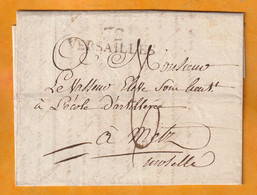 VERSAILLES
Monsieur
Le Vasseur Eleve Sous Lieut.
à L'école d'artillerie
à Metz
moselle